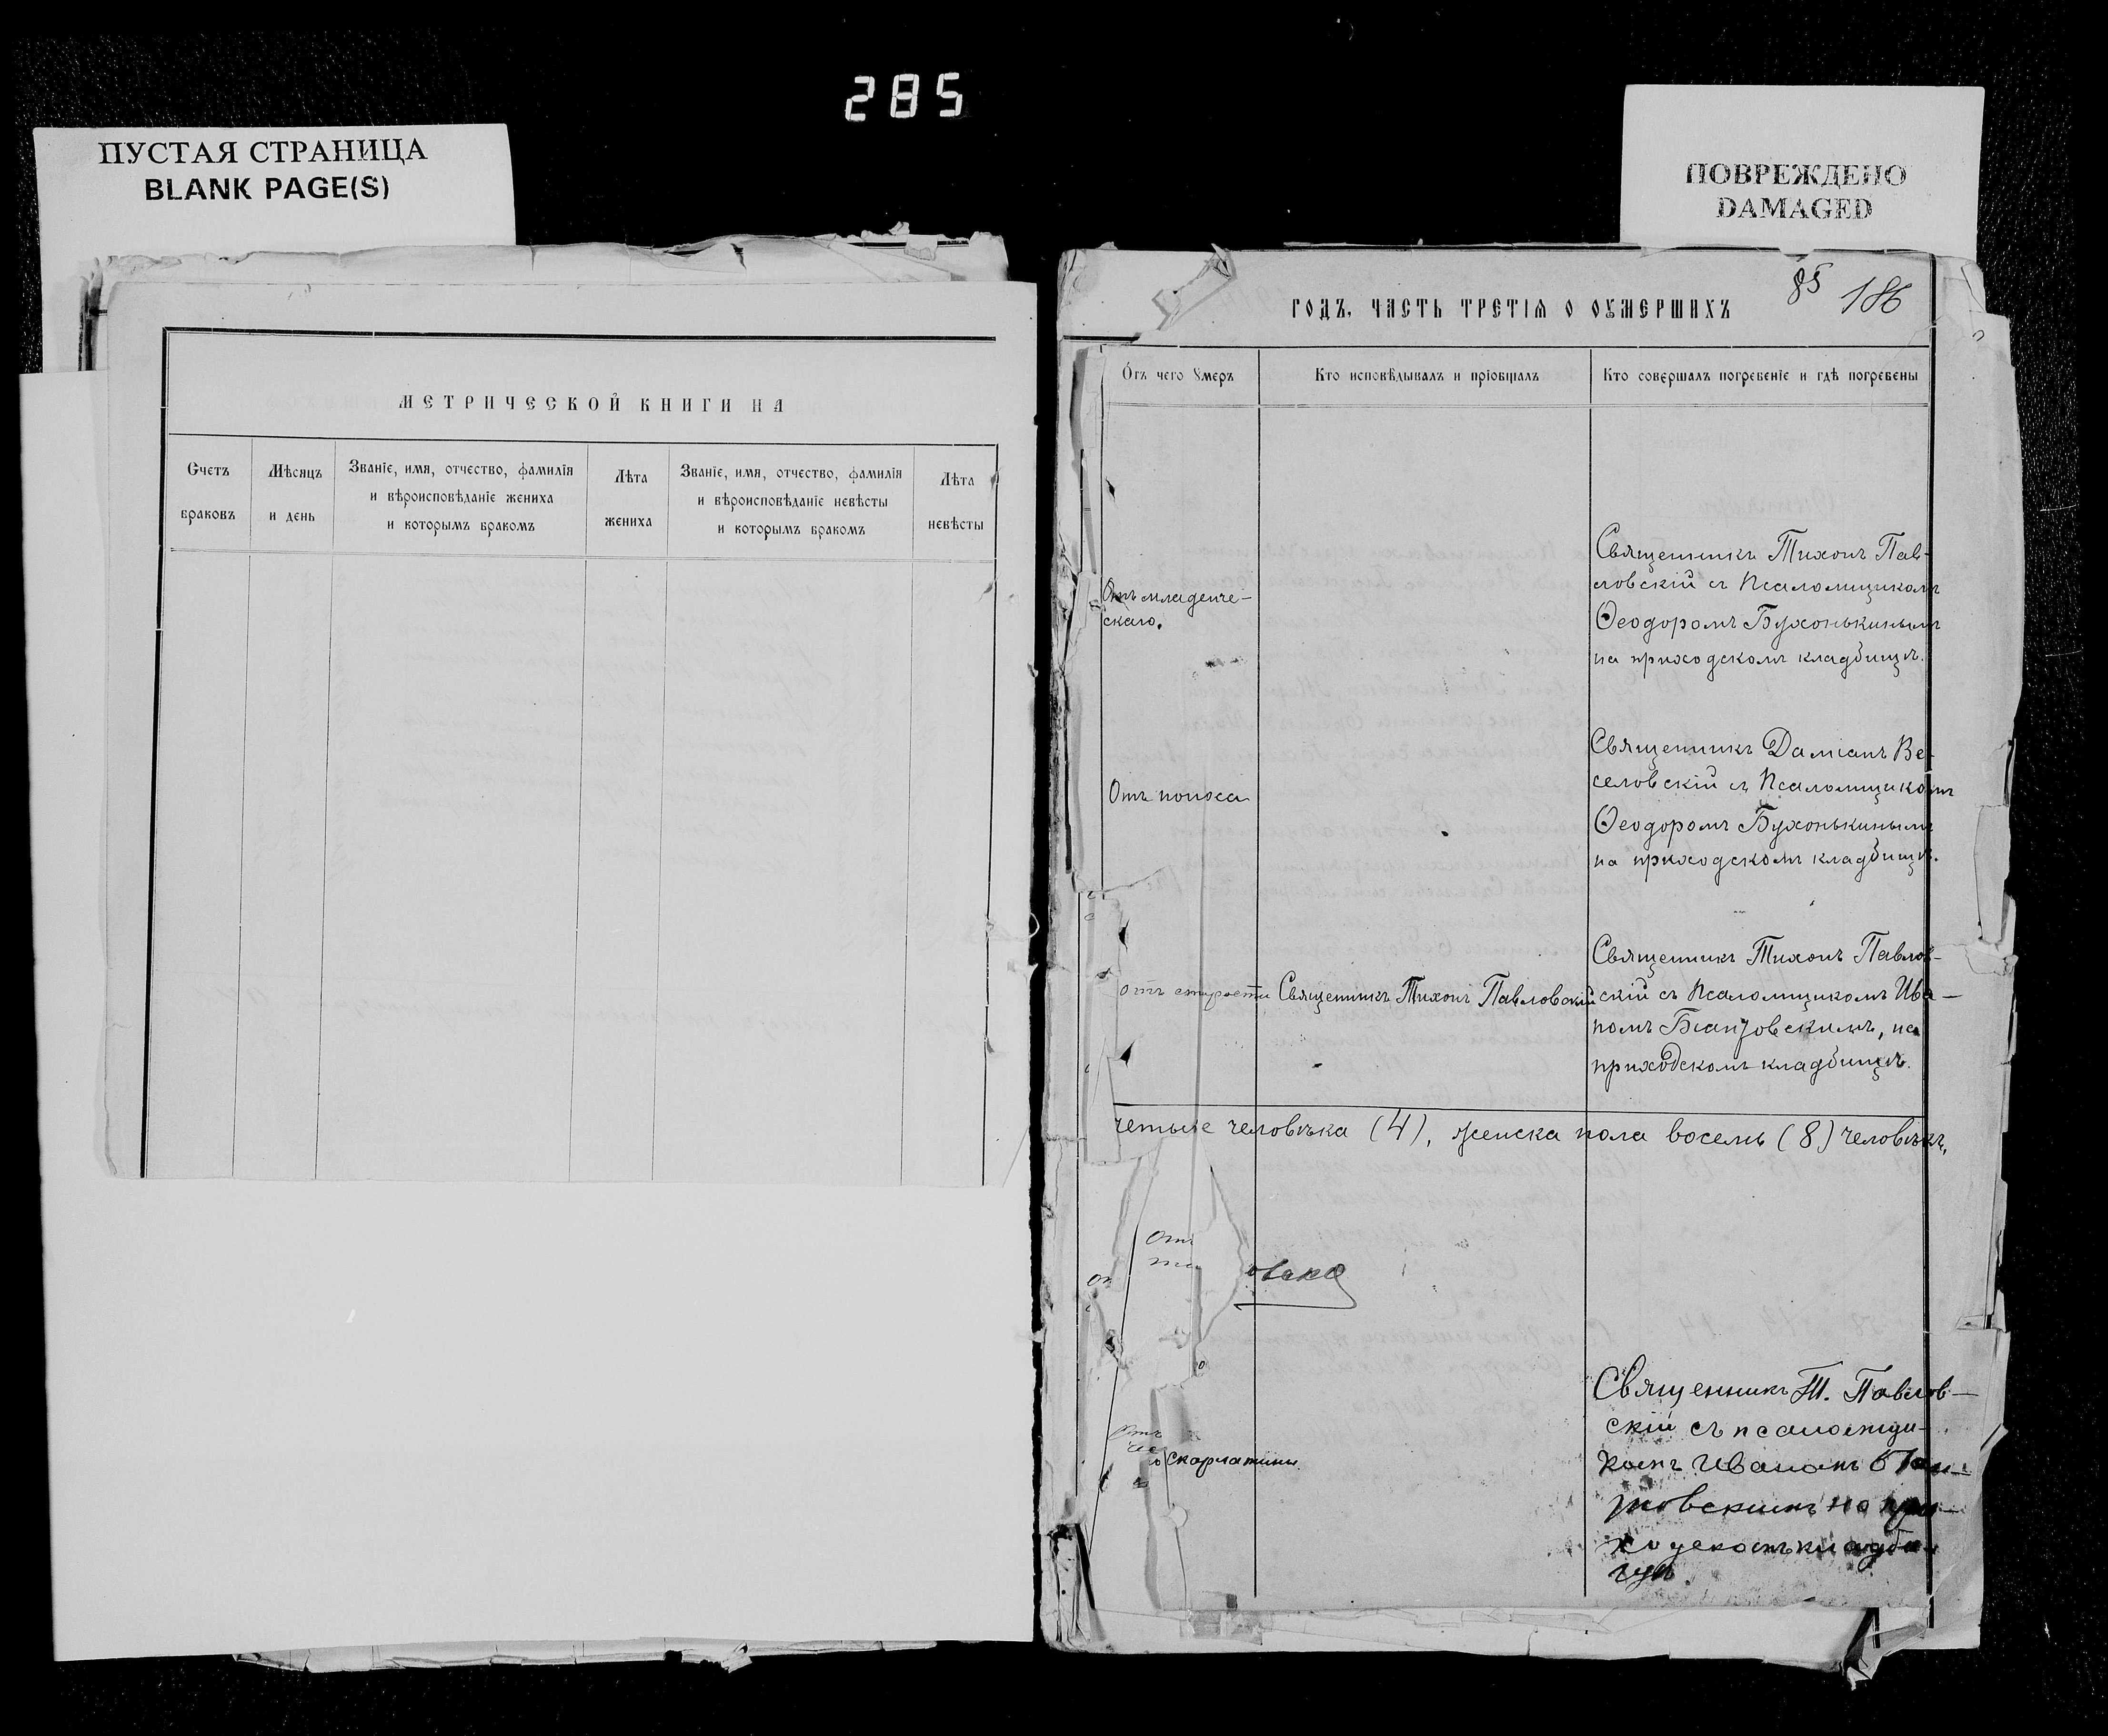 285
ПУСТАЯ СТРАНИЦА
BLANK PAGE(S)
ПОВРЕЖДЕНО
DAMAGED
МЕТРИЧЕСКОЙ КНИГИ НА
Счетъ
браковъ
Мѣсяцъ
и день
Званіе, имя, отчество, фамилія
и вѣроисповѣданіе жениха
и которымъ бракомъ
Лѣта
жениха
Званіе, имя, отчество, фамилія
и вѣроисповѣданіе невѣсты
и которымъ бракомъ
Лѣта
невѣсты
85 186
ГОДЪ, ЧАСТЬ ТРЕТІѦ О ОУМЕРШИХЪ
Отъ чего умеръ
Кто исповѣдывалъ и пріобщалъ
Кто совершалъ погребеніе и гдѣ погребены
Отъ младенче-
скаго.
Священникъ Тихонъ Пав-
ловскій съ Псаломщикомъ
Ѳеодоромъ Бухонькинымъ
на приходскомъ кладбищѣ.
Отъ поноса
Священникъ Даміанъ Ве-
селовскій съ Псаломщикомъ
Ѳеодоромъ Бухонькинымъ
на приходскомъ кладбищѣ.
отъ старости
Священникъ Тихонъ Павловскій
Священникъ Тихонъ Павлов-
скій съ Псаломщикомъ Ива-
номъ
на
приходскомъ кладбищѣ.
четыре человѣка (4), женска пола восемь (8) человѣкъ,
Отъ
скарлатины.
Священникъ Т. Павлов-
скій съ псаломщи-
комъ Иваномъ
на при-
ходскомъ кладби-
щѣ.